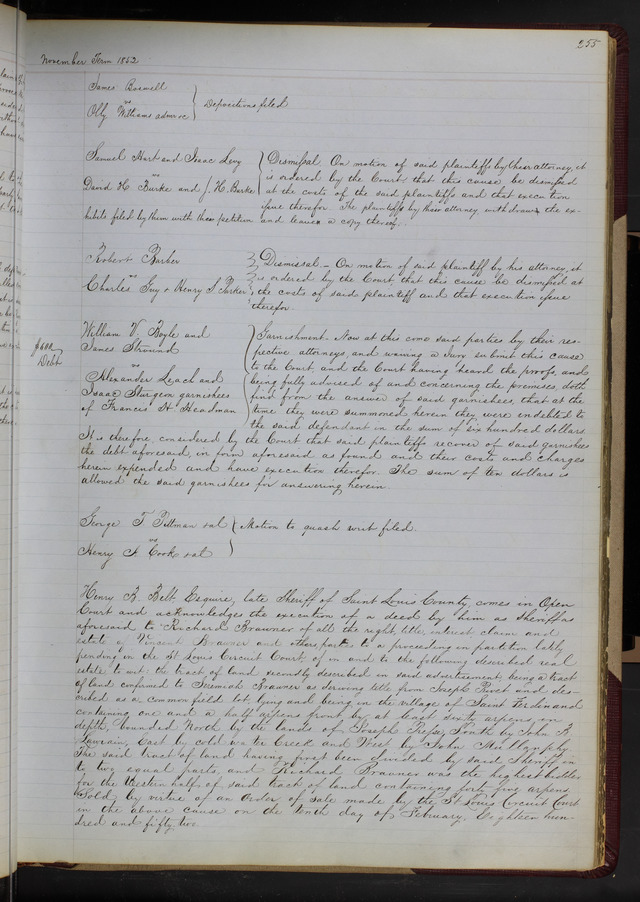 255
November Term 1852
James Boswell
vs
Olly Williams admr &c } Depositions filed
Samuel Hart and Isaac Levy
vs
David H. Burke and J. H. Burke
Dismissal On motion of said plaintiffs by their attorney, it
is ordered by the Court that this cause be dismissed
at the costs of the said plaintiffs and that execution
issue therefor. The plaintiffs by their attorney withdraws the ex-
hibits filed by them with their petition and leaves a copy thereof.
Robert Barker
vs
Charles Guy & Henry S. Parker
Dismissal - On motion of said plaintiff by his attorney, it
is ordered by the Court, that this cause be dismissed at
the costs of said plaintiff and that execution issue
therefor.
Debt
William V. Boyle and
James Stround
vs
Alexander Leach and
Isaac Sturgeon garnishees
of Francis H. Headman
Garnishment. Now at this come said parties by their res-
pective attorneys, and waiving a Jury submit this cause
to the Court, and the Court having heard the proofs, and
being fully advised of and concerning the premises, doth
find from the answer of said garnishees, that at the
time they were summoned herein they were indebted to
the said defendant in the sum of six hundred dollars.
It is therefore, considered by the Court that said plaintiffs recover of said garnishees
the debt aforesaid, in form aforesaid as found and their costs and charges
herein expended and have execution therefor. The sum of ten dollars is
allowed the said garnishees for answering herein.
George T. Pittman et al
vs
Henry F. Cook et al } Motion to quash writ filed.
Henry B. Belt Esquire, late Sheriff of Saint Louis County, comes in Open
Court and acknowledges the execution of a deed by him as Sheriff as
aforesaid to Richard Brawner of all the right, title, interest claim and
estate of Vincent Brawner and others, parties to a proceeding in partition lately
pending in the St Louis Circuit Court, of in and to the following described real
estate to wit: the tract of land secondly described in said advertisement, being a tract
of land confirmed to Jeremiah Brawner as deriving title from Joseph Rivet and des-
cribed as a common field lot, lying and being in the village of Saint Ferdinand
containing one and a half arpens front by at least sixty arpens in
depth, bounded North by the lands of Joseph South by John R.
East by cold water Creek and West by John Mullanphy
The said tract of land having first been divided by said Sheriff in
to two equal parts, and Richard Brawner was the highest bidder
for the Western half of said tract of land containing forty five arpens
Sold by virtue of an Order of sale made by the St Louis Circuit Court
in the above cause on the tenth day of February, Eighteen hun-
dred and fifty two.